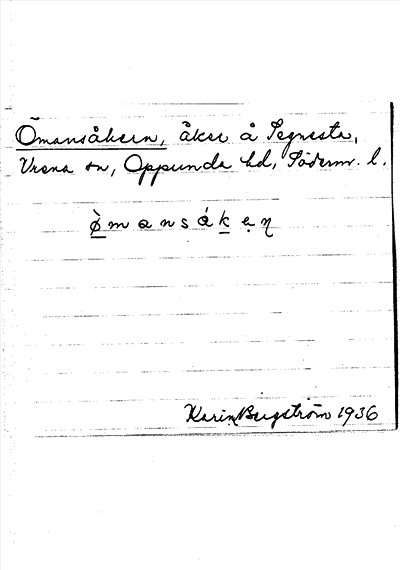 Ömansåkern, åker å Segnesta,
Vrena sn, Oppunda hd, Söderm. l.
ø̀mansåkeṇ
Karin Bergström 1936